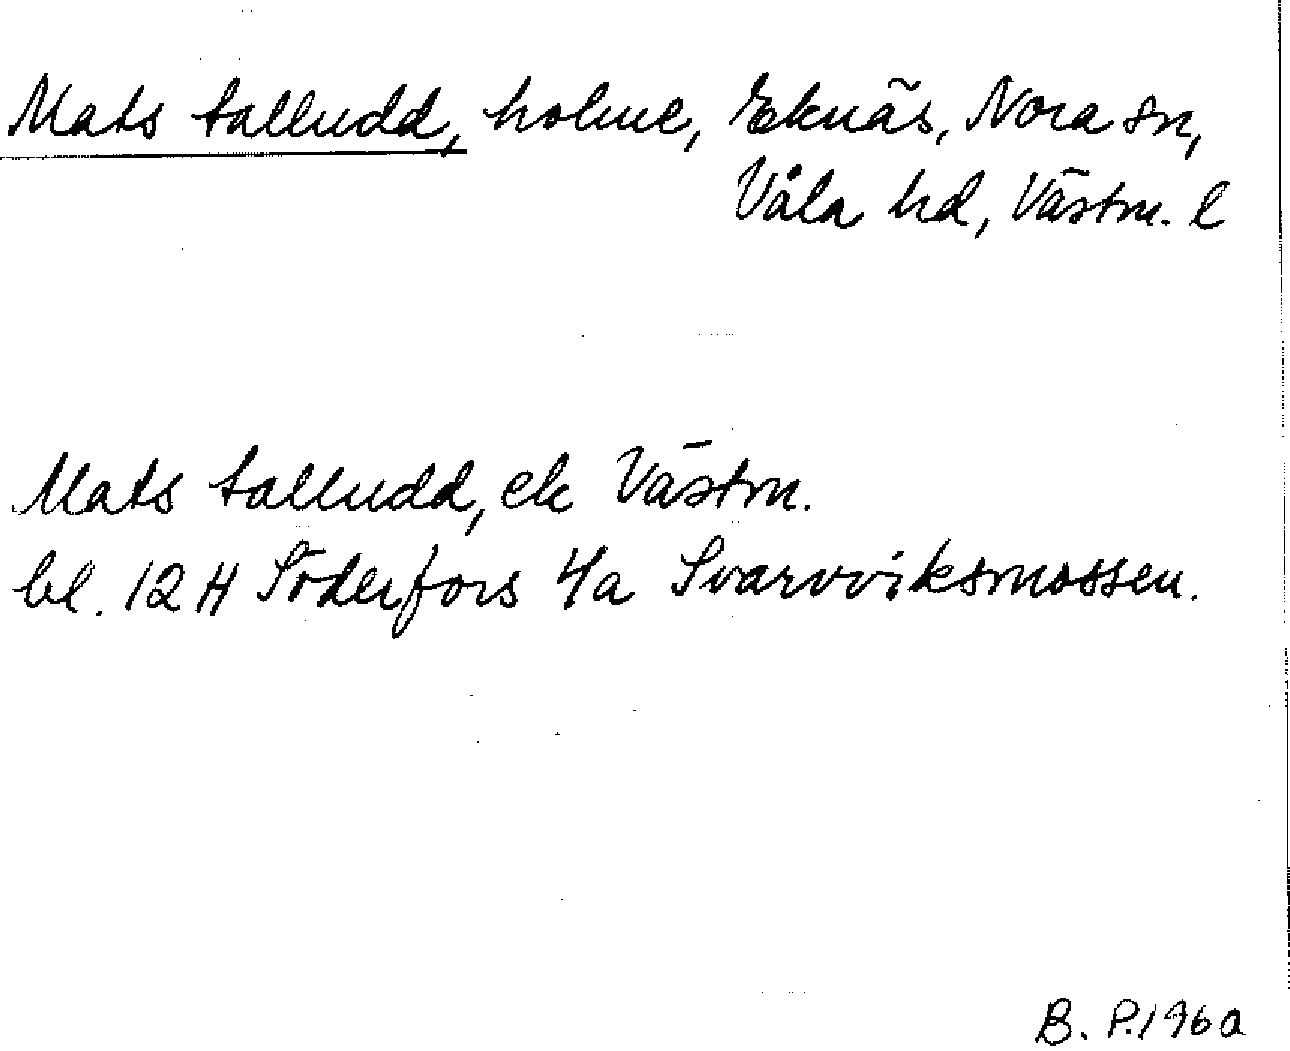 Mats talludd, holme, Eknäs, Nora sn,
Våla hd, Västm. l
Mats talludd, ek Västm.
bl. 12 H Söderfors 4a Svarvviksmossen.
B. P. 196a